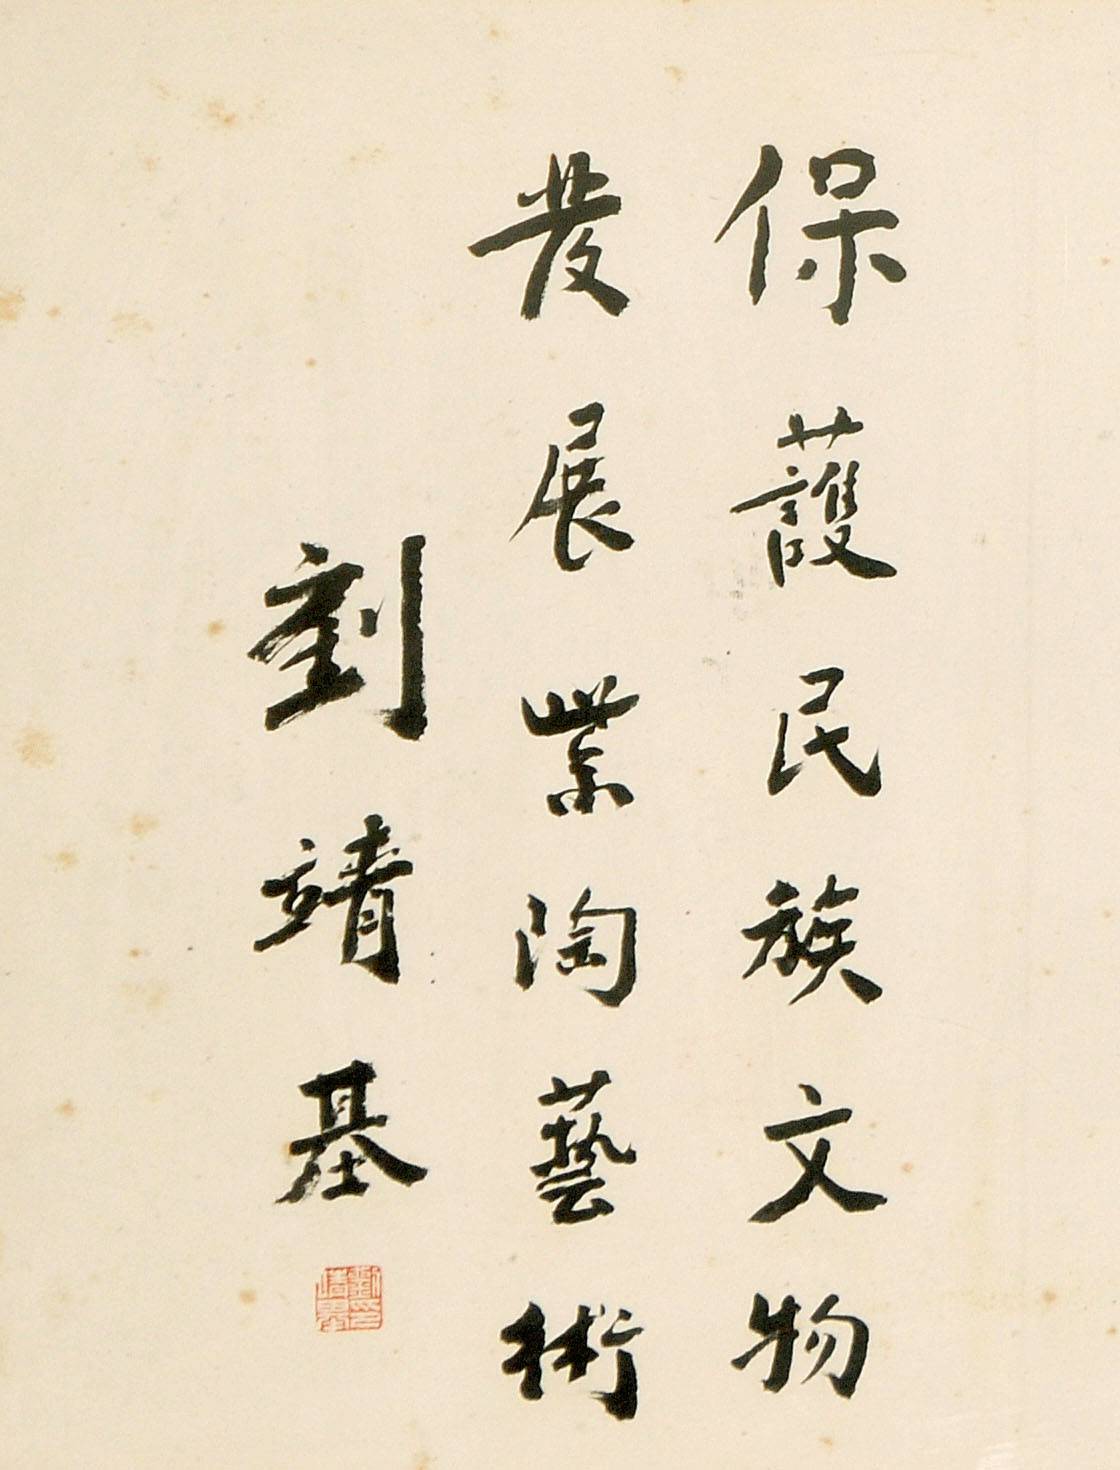 保護民族文物
發展紫陶藝術
劉靖基
劉印靖基